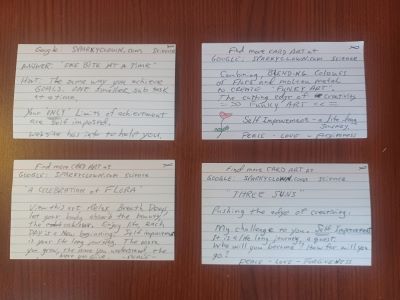 Google: SPARKYCLOWN.com Science
ANSWER: "ONE BITE AT A TIME"
HOW: The same way you achieve
GOALS. ONE smaller sub task
at a time.
Your ONLY Limits of achievement
are Self imposed.
website has info to help you.
Find more CARD ART at
GOOGLE: SPARKYCLOWN.com Science
Combining, BLENDING Colours
of Fluid and molten metal
to CREATE "FUNKY ART".
The cutting edge of creativity
=>> FUNKY ART <<=
Self Improvement - a life long
Journey.
PEACE - LOVE - FORGIVENESS
Find more CARD ART at
GOOGLE: SPARKYCLOWN.com science
A CELEBRATION of FLORA
View this art, relax Breath Deeply
let your body absorb the beauty!
The Enjoy life, each
DAY is a New beginning! Self improvement
is your life long journey. The more
you grow, the more you understand, the
more you give.
Find more CARD ART at
GOOGLE: SPARKYCLOWN.com Science
"THREE SUNS"
Pushing the edge of creativity.
My challenge to you. Self Improvement
It is a life long journey, a quest.
Who will you become? How far will you
go?
PEACE - LOVE - FORGIVENESS